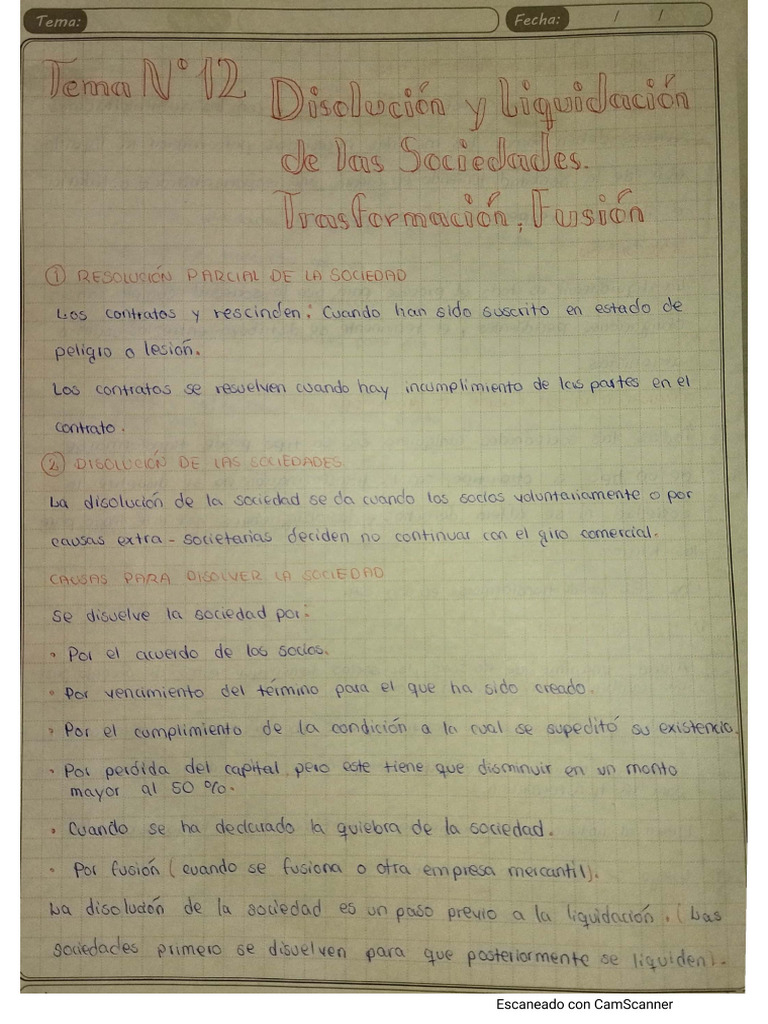 Tema:
Fecha: / /
Tema N° 12 Disolución y Liquidación
de las Sociedades.
Trasformación, Fusión
① RESOLUCIÓN PARCIAL DE LA SOCIEDAD
Los contratos y rescinden: Cuando han sido suscrito en estado de
peligro o lesión.
Los contratos se resuelven cuando hay incumplimiento de las partes en el
contrato.
② DISOLUCIÓN DE LAS SOCIEDADES
La disolución de la sociedad se da cuando los socios voluntariamente o por
causas extra-societarias deciden no continuar con el giro comercial.
CAUSAS PARA DISOLVER LA SOCIEDAD
Se disuelve la sociedad por:
• Por el acuerdo de los socios.
• Por vencimiento del término para el que ha sido creado.
• Por el cumplimiento de la condición a la cual se supeditó su existencia.
• Por perdida del capital pero este tiene que disminuir en un monto
mayor al 50 %.
• Cuando se ha declarado la quiebra de la sociedad.
• Por fusión (cuando se fusiona o otra empresa mercantil).
La disolución de la sociedad es un paso previo a la liquidación. (Las
sociedades primero se disuelven para que posteriormente se liquiden).
Escaneado con CamScanner